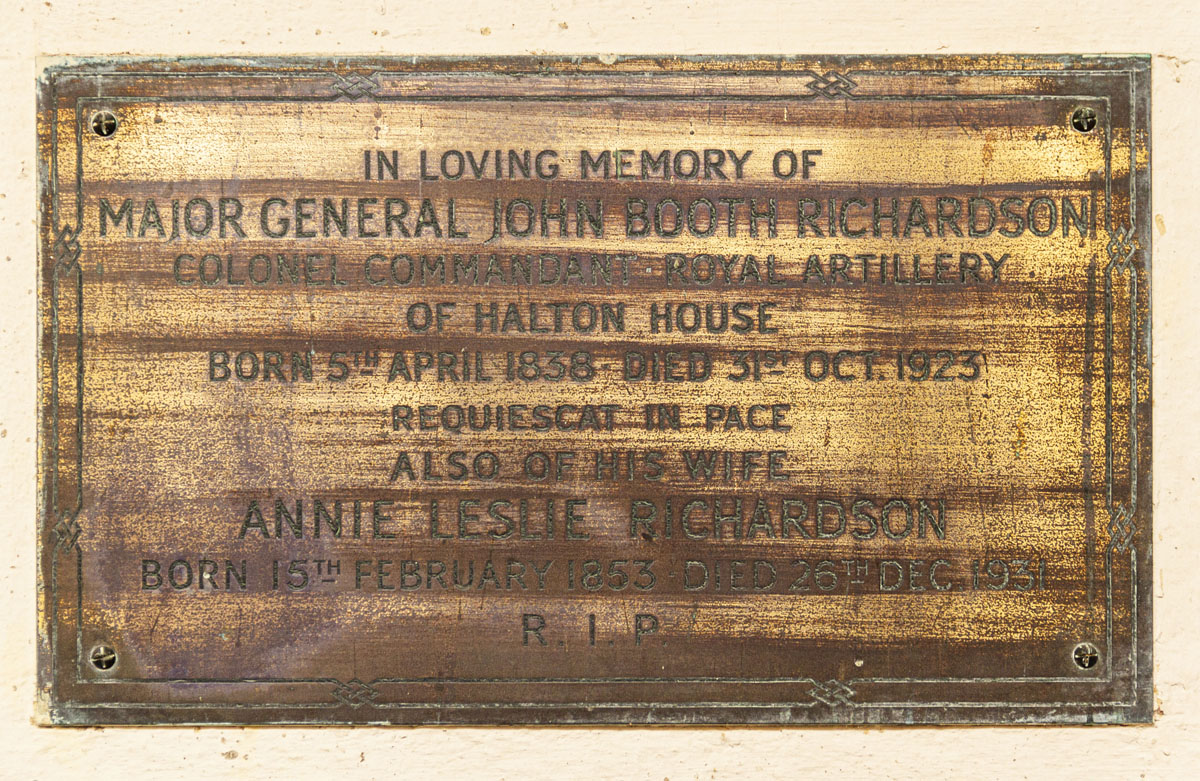 IN LOVING MEMORY OF
MAJOR GENERAL JOHN BOOTH RICHARDSON
COLONEL COMMANDANT ROYAL ARTILLERY
OF HALTON HOUSE
BORN 5TH APRIL 1838 - DIED 31ST OCT. 1923
REQUIESCAT IN PACE
ALSO OF HIS WIFE
ANNIE LESLIE RICHARDSON
BORN 15TH FEBRUARY 1853 - DIED 26TH DEC. 1931
R. I. P.